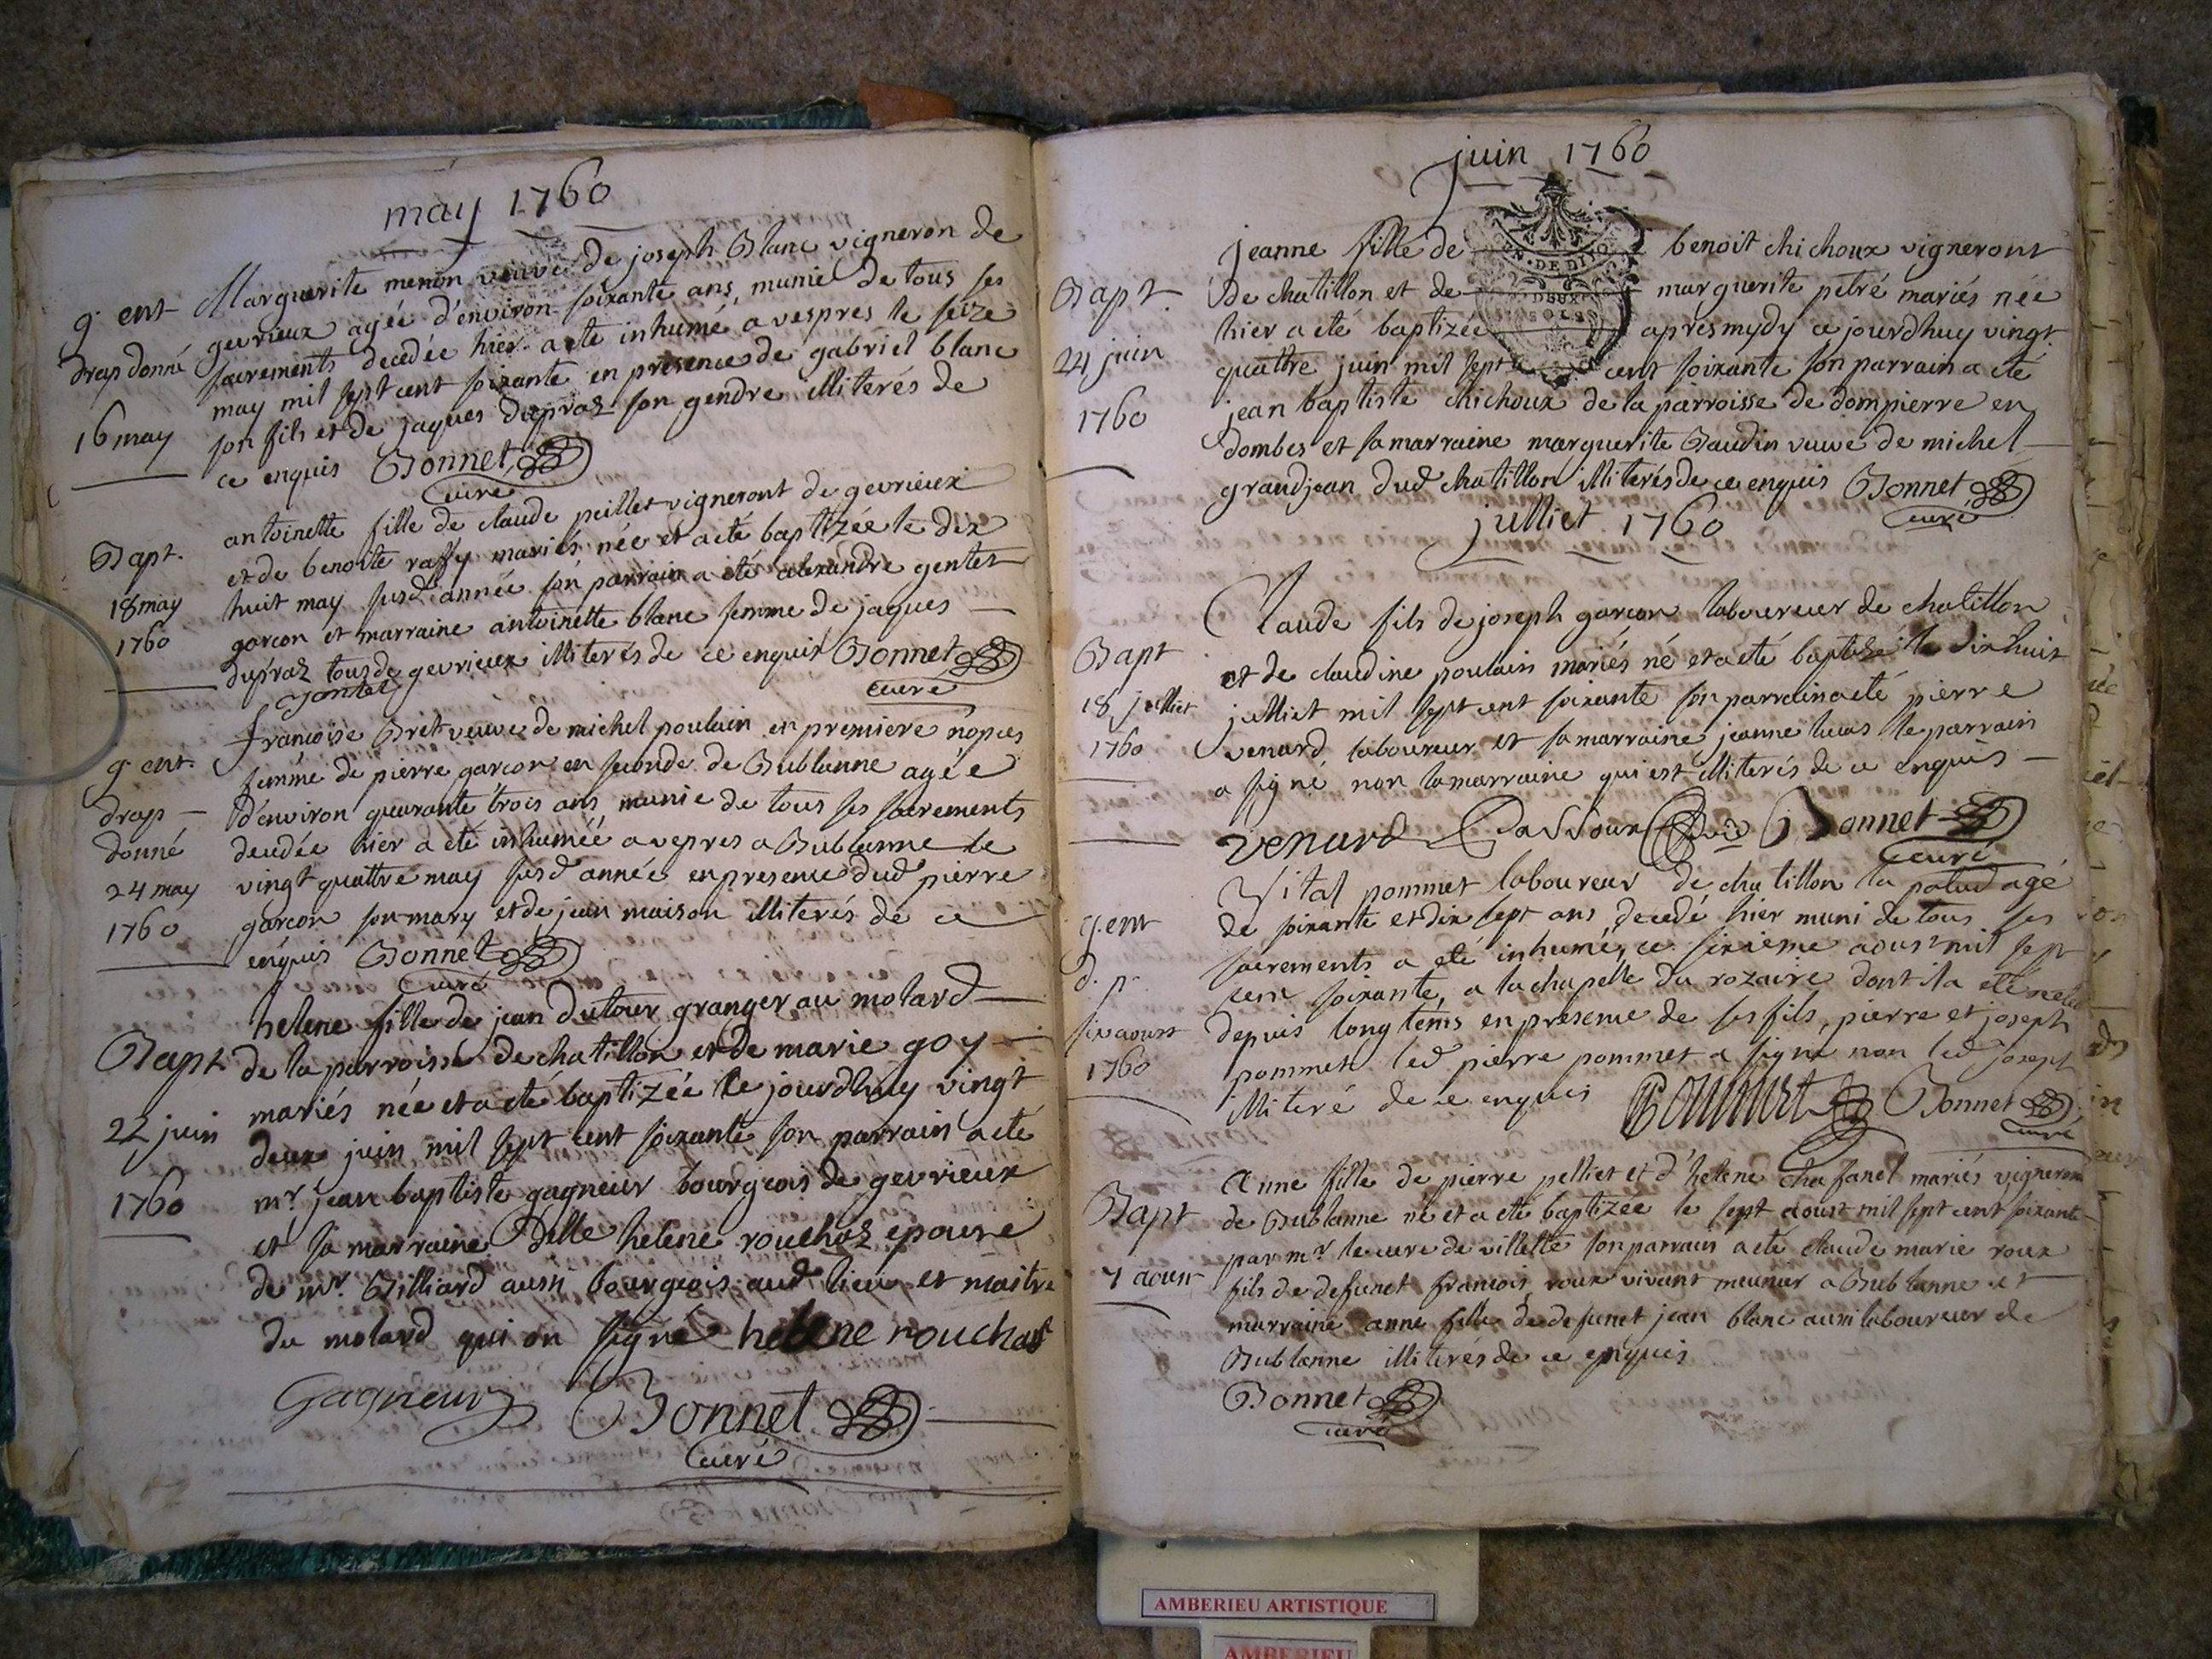 may 1760
g. ent
drap donné
16 may
Marguerite menon veuve de joseph Blanc vigneron de
gevrieux agée d'environ soixante ans, munie de tous ses
sacrements decedée hier a ete inhumé a vespres le seize
may mil sept cent soixante en presence de gabriel blanc
son fils et de jaques dupraz son gendre illiterés de
ce enquis Bonnet
curé
Bapt.
18 may
1760
antoinette fille de claude peillet vigneront de gevrieux
et de benoite raffy mariés née et a eté baptizée le dix
huit may susd année son parrain a eté alexandre gentet
garcon et marraine antoinette blanc femme de jaques
dupraz tous de gevrieux illiterés de ce enquis Bonnet
curé
g. ent.
drap
donné
24 may
1760
francoise Bret veuve de michel poulain en premiere nopces
femme de pierre garcon en seconde de Bublanne agée
d'environ quarante trois ans munie de tous ses sacrements
decedée hier a eté inhumée a vepres a Bublanne le
vingt quattre may susd année en presence dud pierre
garcon son mary et de jean maison illiterés de ce
enquis Bonnet
curé
Bapt
22 juin
1760
helene fille de jean dutour granger au molard
de la parroisse de chatillon et de marie goy
mariés née et a ete baptizée le jourdhuy vingt
deux juin mil sept cent soixante son parrain a eté
mr. jean baptiste gagneur bourgeois de gevrieux
et sa marraine Delle helene rouchaz epouse
de mr. Billiard aussi bourgeois aud lieu et maitre
du molard qui on signé helene rouchas
Gagneur Bonnet
curé
juin 1760
Bapt
24 juin
1760
jeanne fille de benoit chichoux vigneront
de chatillon et de marguerite petré mariés née
hier a eté baptizée apres mydy ce jourdhuy vingt
quattre juin mil sept cent soixante son parrain a eté
jean baptiste chichoux de la parroisse de dompierre en
dombes et sa marraine marguerite Baudin veuve de michel
grandjean dud chatillon illiterés de ce enquis Bonnet
curé
julliet 1760
Bapt
18 julliet
1760
Claude fils de joseph garcon laboureur de chatillon
et de claudine poulain mariés né et a eté baptizé le dix huit
julliet mil sept cent soixante son parrain a eté pierre
venard laboureur et sa marraine jeanne lucas le parrain
a signé non la marraine qui est illiterés de ce enquis
venard Bonnet
curé
g. ent
d. p.
six aoust
1760
Vital pommet laboureur de chatillon la palud agé
de soixante et dix sept ans decedé hier muni de tous ses
sacrements a eté inhumé, ce sixieme aoust mil sept
cent soixante, a la chapelle du rozaire dont il a eté
depuis long tems en presence de ses fils, pierre et joseph
pommet led pierre pommet a signé non led joseph
illiteré de ce enquis Pommet Bonnet
curé
Bapt
7 aoust
Anne fille de pierre pelliet et d'helene chafanel mariés vigneron
de Bublanne né et a eté baptizée le sept aoust mil sept cent soixante
par mr le cure de villette son parrain a eté claude marie roux
fils de defunct francois roux vivant meunier a Bublanne et
marraine anne fille de defunct jean blanc aussi laboureur de
Bublanne illiterés de ce enquis
Bonnet
curé
AMBERIEU ARTISTIQUE
AMBERIEU